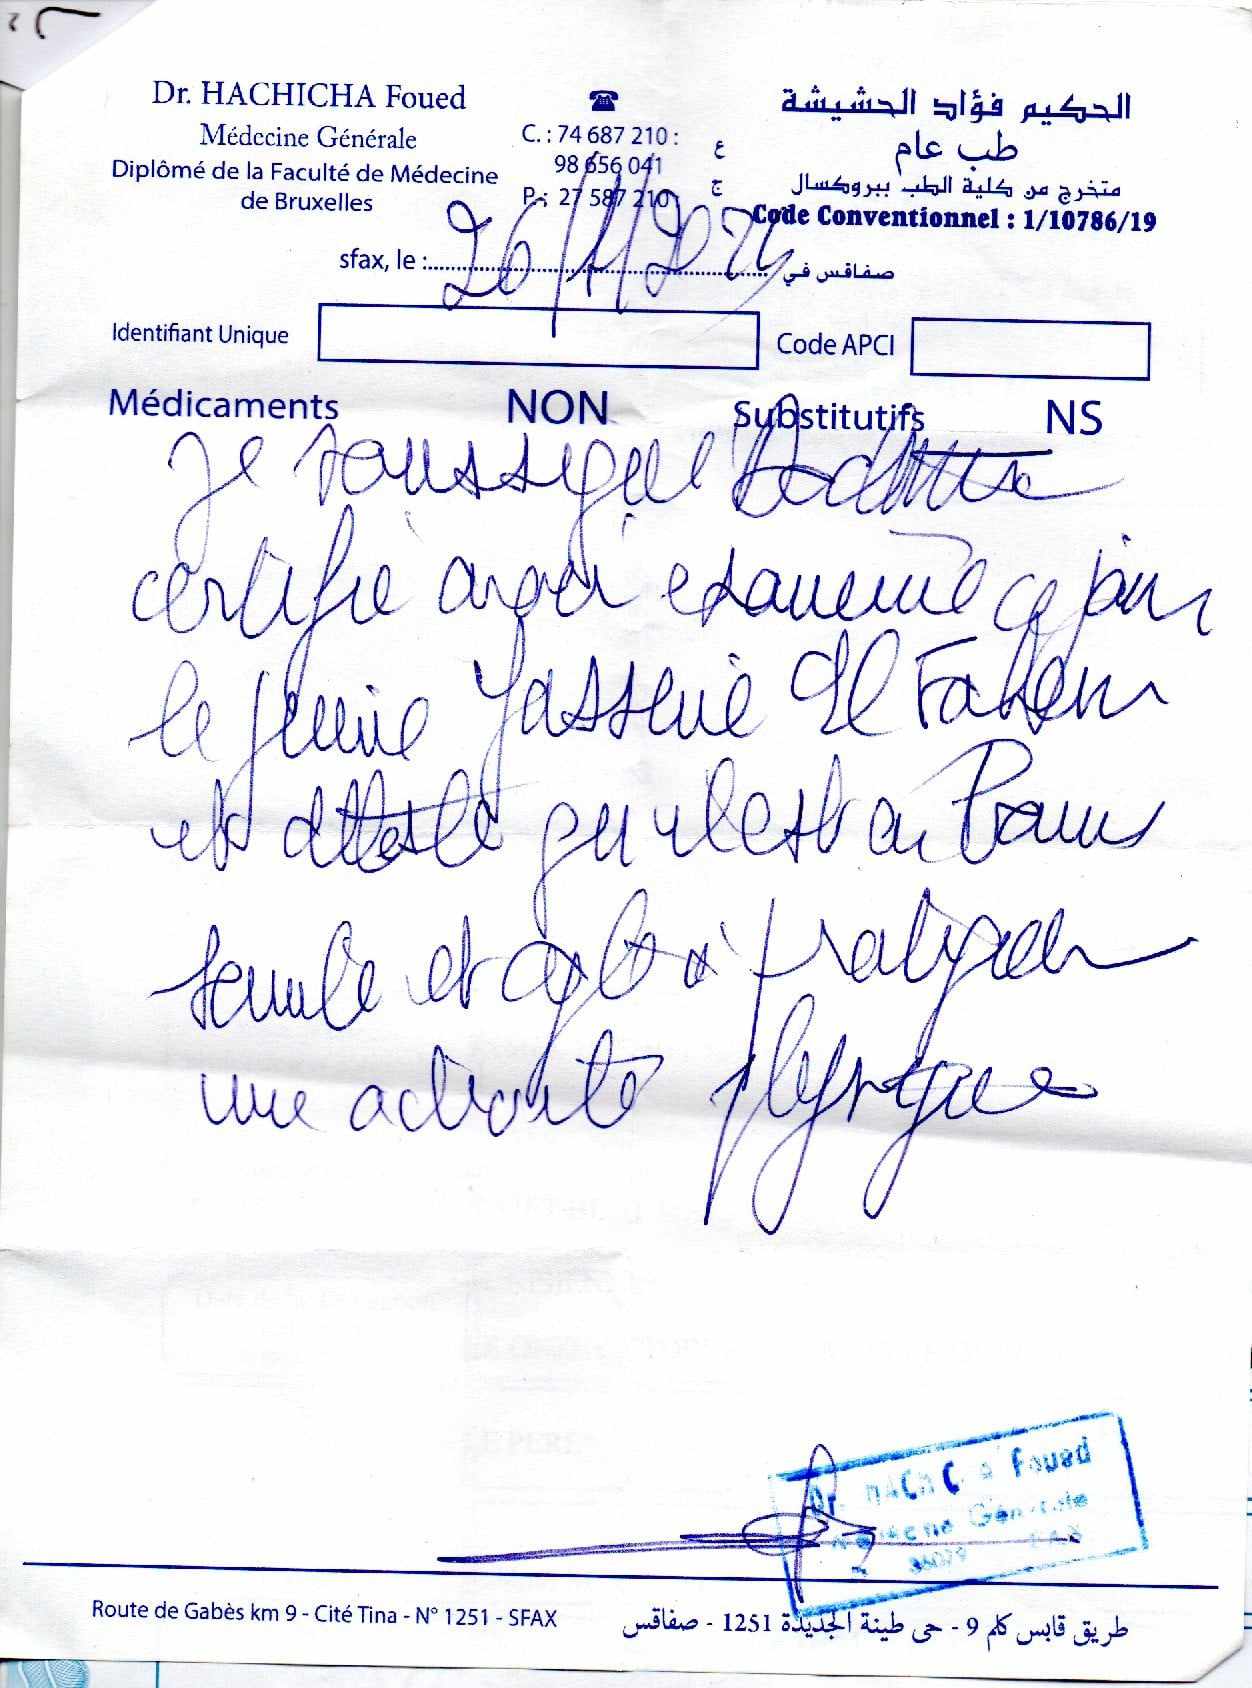 Dr. HACHICHA Foued
Médecine Générale
Diplômé de la Faculté de Médecine
de Bruxelles
C. : 74 687 210 : ع
98 656 041
P. : 27 587 210 ج
الحكيم فؤاد الحشيشة
طب عام
متخرج من كلية الطب ببروكسال
Code Conventionnel : 1/10786/19
sfax, le : 26/1/202 صفاقس في
Identifiant Unique
Code APCI
Médicaments NON Substitutifs NS
Je soussigné
certifie avoir examiné ce jour
le jeune Yassine El Fahem
et atteste qu'il est en bonne
santé et apte à pratiquer
une activité physique
Dr. HACHICHA Foued
Médecine Générale
Route de Gabès km 9 - Cité Tina - N° 1251 - SFAX
طريق قابس كلم 9 - حي طينة الجديدة 1251 - صفاقس